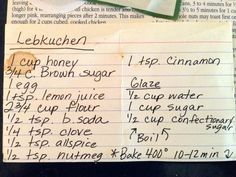 longer pink, rearranging pieces after 2 minutes. This makes
enough for 2 cups cubed, cooked chicken
Lebkuchen
1 cup honey
3/4 c. Brown sugar
1 egg
1 tsp. lemon juice
2 3/4 cup flour
1/2 tsp. b. soda
1/4 tsp. clove
1/2 tsp. allspice
1/2 tsp. nutmeg
1 tsp. Cinnamon
Glaze
1/2 cup water
1 cup sugar
1/2 cup confectionary
sugar
Boil
*Bake 400° 10-12 min